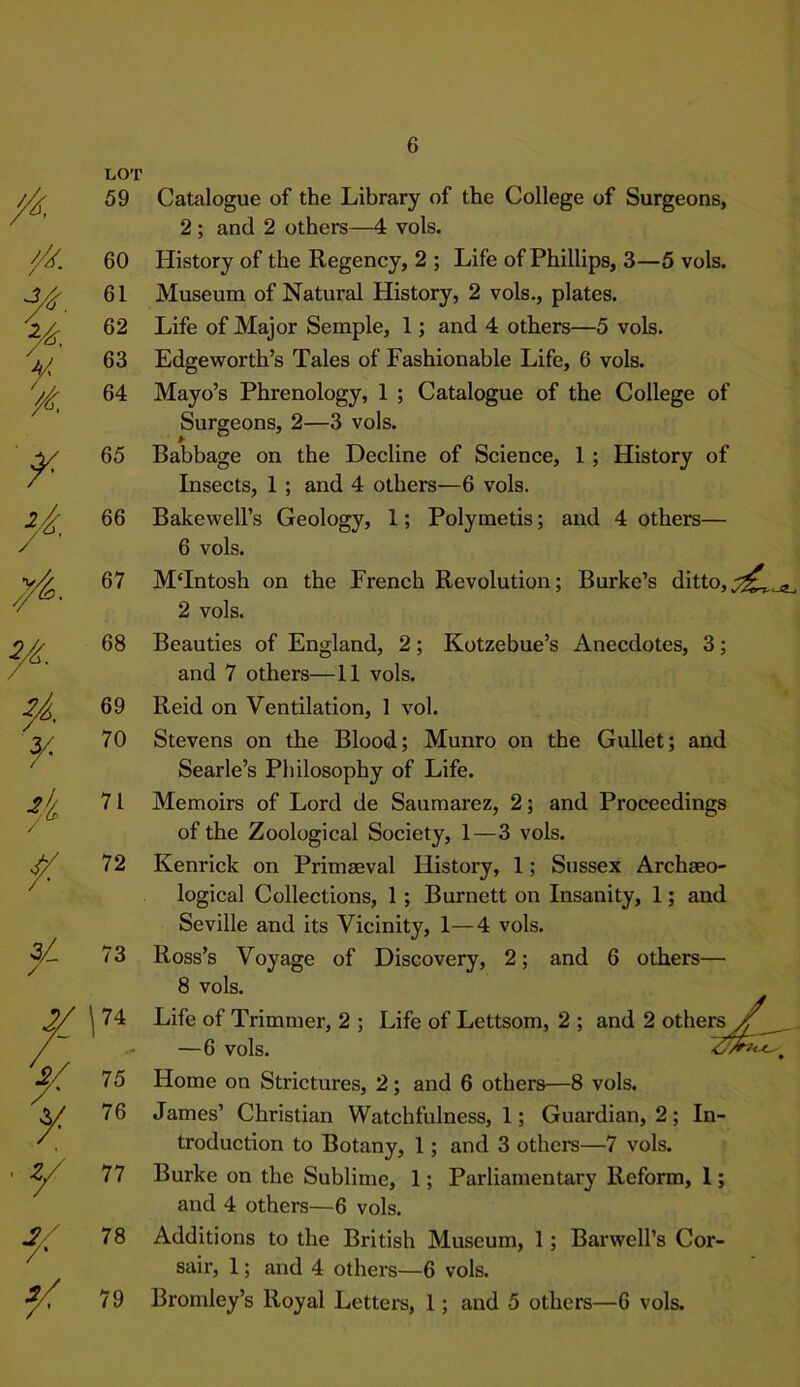 6
LOT
1/6. 59 Catalogue of the Library of the College of Surgeons,
2 ; and 2 others—4 vols.
1/6. 60 History of the Regency, 2 ; Life of Phillips, 3—5 vols.
3/6. 61 Museum of Natural History, 2 vols., plates.
2/6. 62 Life of Major Semple, 1 ; and 4 others—5 vols.
63 Edgeworth’s Tales of Fashionable Life, 6 vols.
64 Mayo’s Phrenology, 1 ; Catalogue of the College of
Surgeons, 2—3 vols.
65 Babbage on the Decline of Science, 1 ; History of
Insects, 1 ; and 4 others—6 vols.
2/6. 66 Bakewell’s Geology, 1; Polymetis; and 4 others—
6 vols.
67 M‘Intosh on the French Revolution; Burke’s ditto,
2 vols.
2/6. 68 Beauties of England, 2; Kotzebue’s Anecdotes, 3;
and 7 others—11 vols.
2/6. 69 Reid on Ventilation, 1 vol.
3/. 70 Stevens on the Blood; Munro on the Gullet; and
Searle’s Philosophy of Life.
2/6 71 Memoirs of Lord de Saumarez, 2; and Proceedings
of the Zoological Society, 1—3 vols.
72 Kenrick on Primæval History, 1; Sussex Archæo-
logical Collections, 1 ; Burnett on Insanity, 1; and
Seville and its Vicinity, 1—4 vols.
3/- 73 Ross’s Voyage of Discovery, 2; and 6 others—
8 vols.
74 Life of Trimmer, 2 ; Life of Lettsom, 2 ; and 2 others
—6 vols.
2/. 75 Home on Strictures, 2; and 6 others—8 vols.
3/. 76 James’ Christian Watchfulness, 1; Guardian, 2; In-
troduction to Botany, 1; and 3 others—7 vols.
2/ 77 Burke on the Sublime, 1; Parliamentary Reform, 1;
and 4 others—6 vols.
2/. 78 Additions to the British Museum, 1; Barwell’s Cor-
sair, 1; and 4 others—6 vols.
2/. 79 Bromley’s Royal Letters, 1; and 5 others—6 vols.